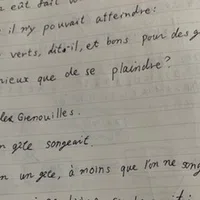 eût fait
il n'y pouvait atteindre:
verts, dit-il, et bons pour des g
mieux que de se plaindre?
les Grenouilles.
n gîte songeait
n un gîte, à moins que l'on ne song